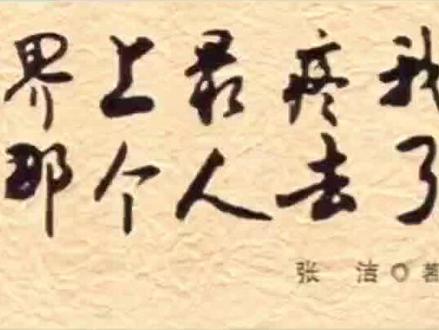 界上最疼我
那个人去了
张 洁◎著